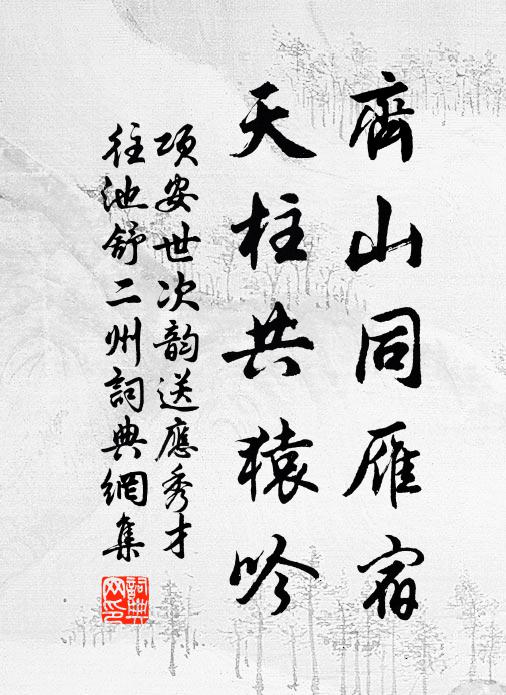 齊山同雁宿
天柱共猿吟
项安世次韵送應秀才
往池舒二州詞典網集
詞典
网印